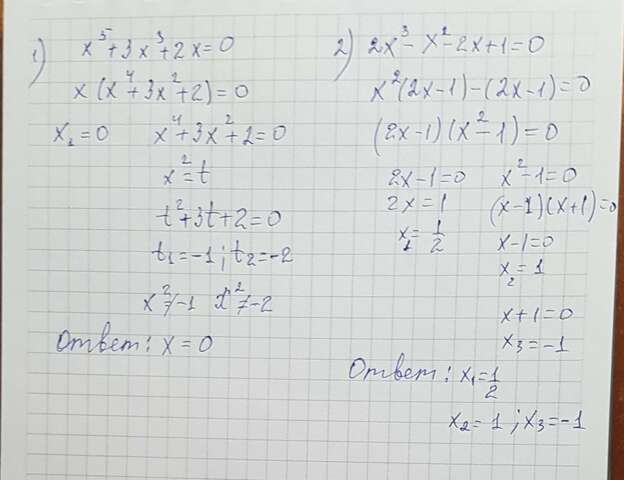 1) x⁵+3x³+2x=0
x(x⁴+3x²+2)=0
x₁=0 x⁴+3x²+2=0
x²=t
t²+3t+2=0
t₁=-1; t₂=-2
x²≠-1 x²≠-2
Ответ: x=0
2) 2x³-x²-2x+1=0
x²(2x-1)-(2x-1)=0
(2x-1)(x²-1)=0
2x-1=0 x²-1=0
2x=1 (x-1)(x+1)=0
x₁=1/2 x-1=0
x₂=1
x+1=0
x₃=-1
Ответ: x₁=1/2
x₂=1; x₃=-1